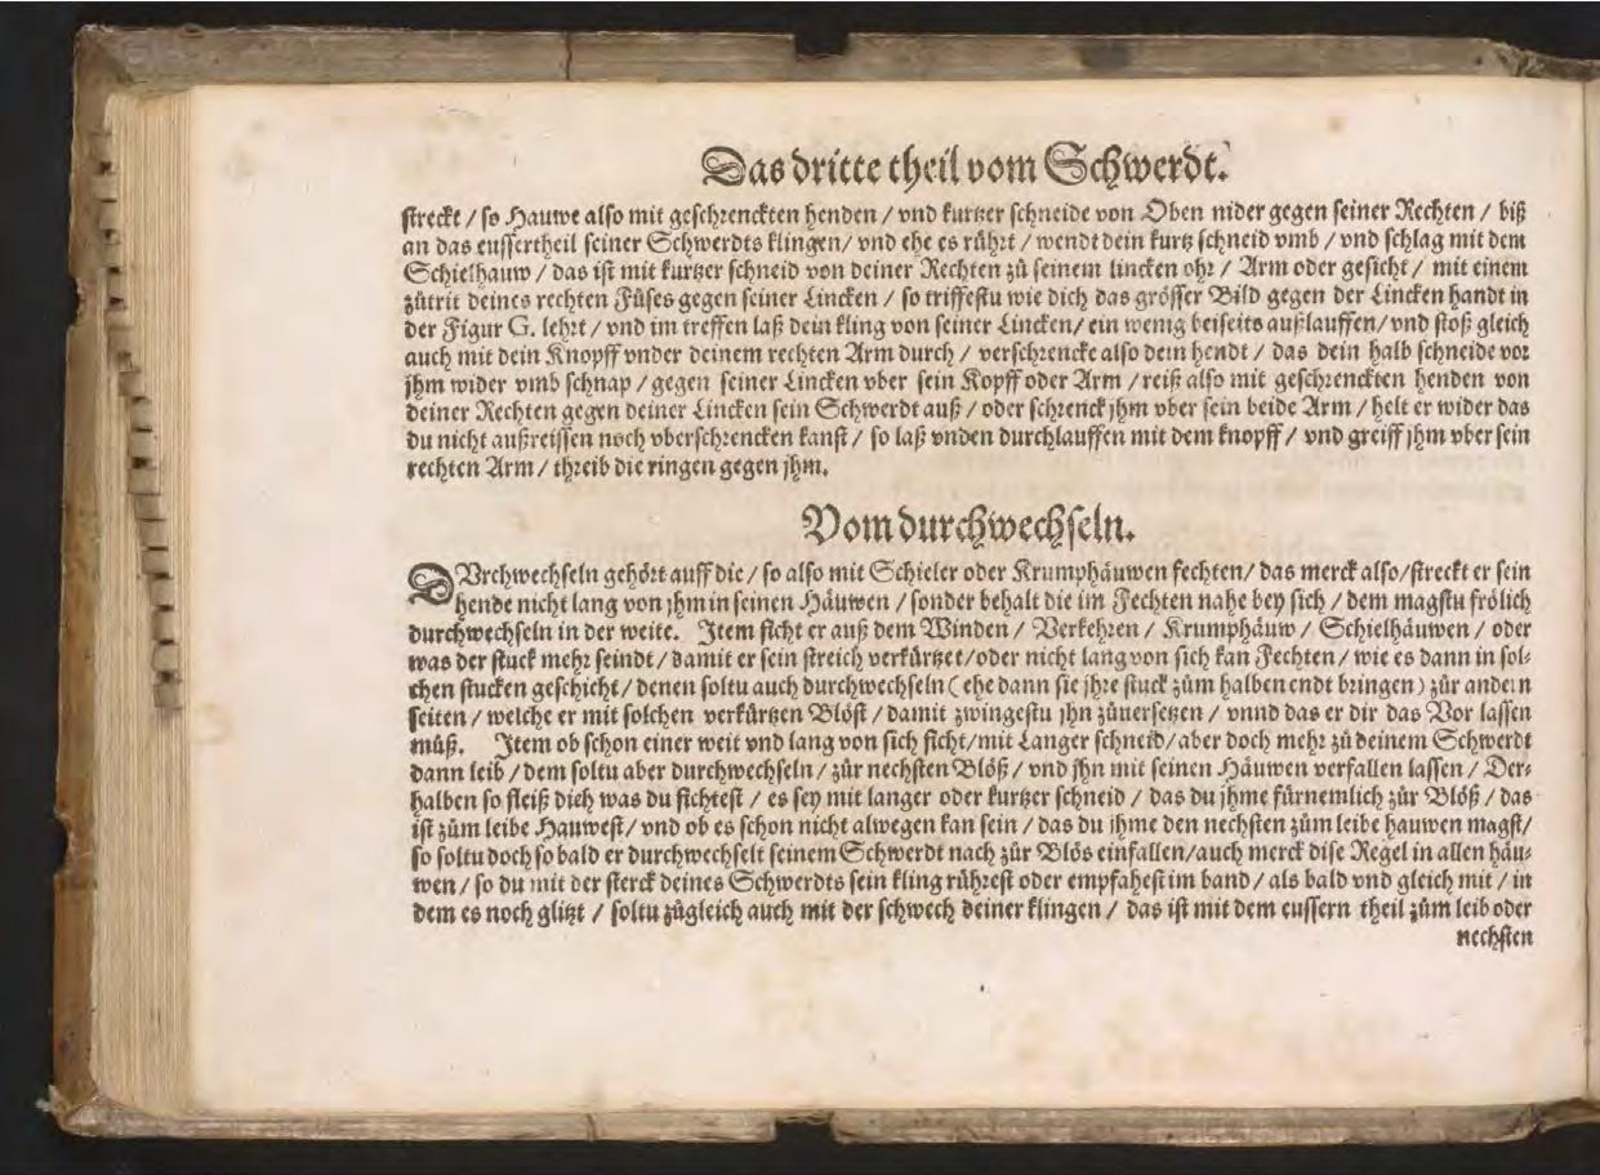 Das dritte theil vom Schwerdt.
streckt / so Hauwe also mit geschrenckten henden / vnd kurtzer schneide von Oben nider gegen seiner Rechten / biß
an das eussertheil seiner Schwerdts klingen / vnd ehe es rührt / wendt dein kurtz schneid vmb / vnd schlag mit dem
Schielhauw / das ist mit kurtzer schneid von deiner Rechten zů seinem lincken ohr / Arm oder gesicht / mit einem
zůtrit deines rechten Fůses gegen seiner Lincken / so triffestu wie dich das grösser Bild gegen der Lincken handt in
der Figur G. lehrt / vnd im treffen laß dein kling von seiner Lincken / ein wenig beiseits außlauffen / vnd stoß gleich
auch mit dein Knopff vnder deinem rechten Arm durch / verschrencke also dein hendt / das dein halb schneide vor
jhm wider vmb schnap / gegen seiner Lincken vber sein Kopff oder Arm / reiß also mit geschrenckten henden von
deiner Rechten gegen deiner Lincken sein Schwerdt auß / oder schrenck jhm vber sein beide Arm / helt er wider das
du nicht außreissen noch vberschrencken kanst / so laß vnden durchlauffen mit dem knopff / vnd greiff jhm vber sein
rechten Arm / threib die ringen gegen jhm.
Vom durchwechseln.
DVrchwechseln gehört auff die / so also mit Schieler oder Krumphäuwen fechten / das merck also / streckt er sein
hende nicht lang von jhm in seinen Häuwen / sonder behalt die im Fechten nahe bey sich / dem magstu frölich
durchwechseln in der weite. Item ficht er auß dem Winden / Verkehren / Krumphäuw / Schielhäuwen / oder
was der stuck mehr seindt / damit er sein streich verkürtzet / oder nicht lang von sich kan Fechten / wie es dann in sol-
chen stucken geschicht / denen soltu auch durchwechseln ( ehe dann sie jhre stuck zům halben endt bringen ) zůr andern
seiten / welche er mit solchen verkürtzen Blöst / damit zwingestu jhn zůuersetzen / vnnd das er dir das Vor lassen
můß. Item ob schon einer weit vnd lang von sich ficht / mit Langer schneid / aber doch mehr zů deinem Schwerdt
dann leib / dem soltu aber durchwechseln / zůr nechsten Blöß / vnd jhn mit seinen Häuwen verfallen lassen / Der-
halben so fleiß dich was du fichtest / es sey mit langer oder kurtzer schneid / das du jhme fürnemlich zůr Blöß / das
ist zům leibe Hauwest / vnd ob es schon nicht alwegen kan sein / das du jhme den nechsten zům leibe hauwen magst /
so soltu doch so bald er durchwechselt seinem Schwerdt nach zůr Blös einfallen / auch merck dise Regel in allen häu-
wen / so du mit der sterck deines Schwerdts sein kling rührest oder empfahest im band / als bald vnd gleich mit / in
dem es noch glitzt / soltu zůgleich auch mit der schwech deiner klingen / das ist mit dem eussern theil zům leib oder
nechsten